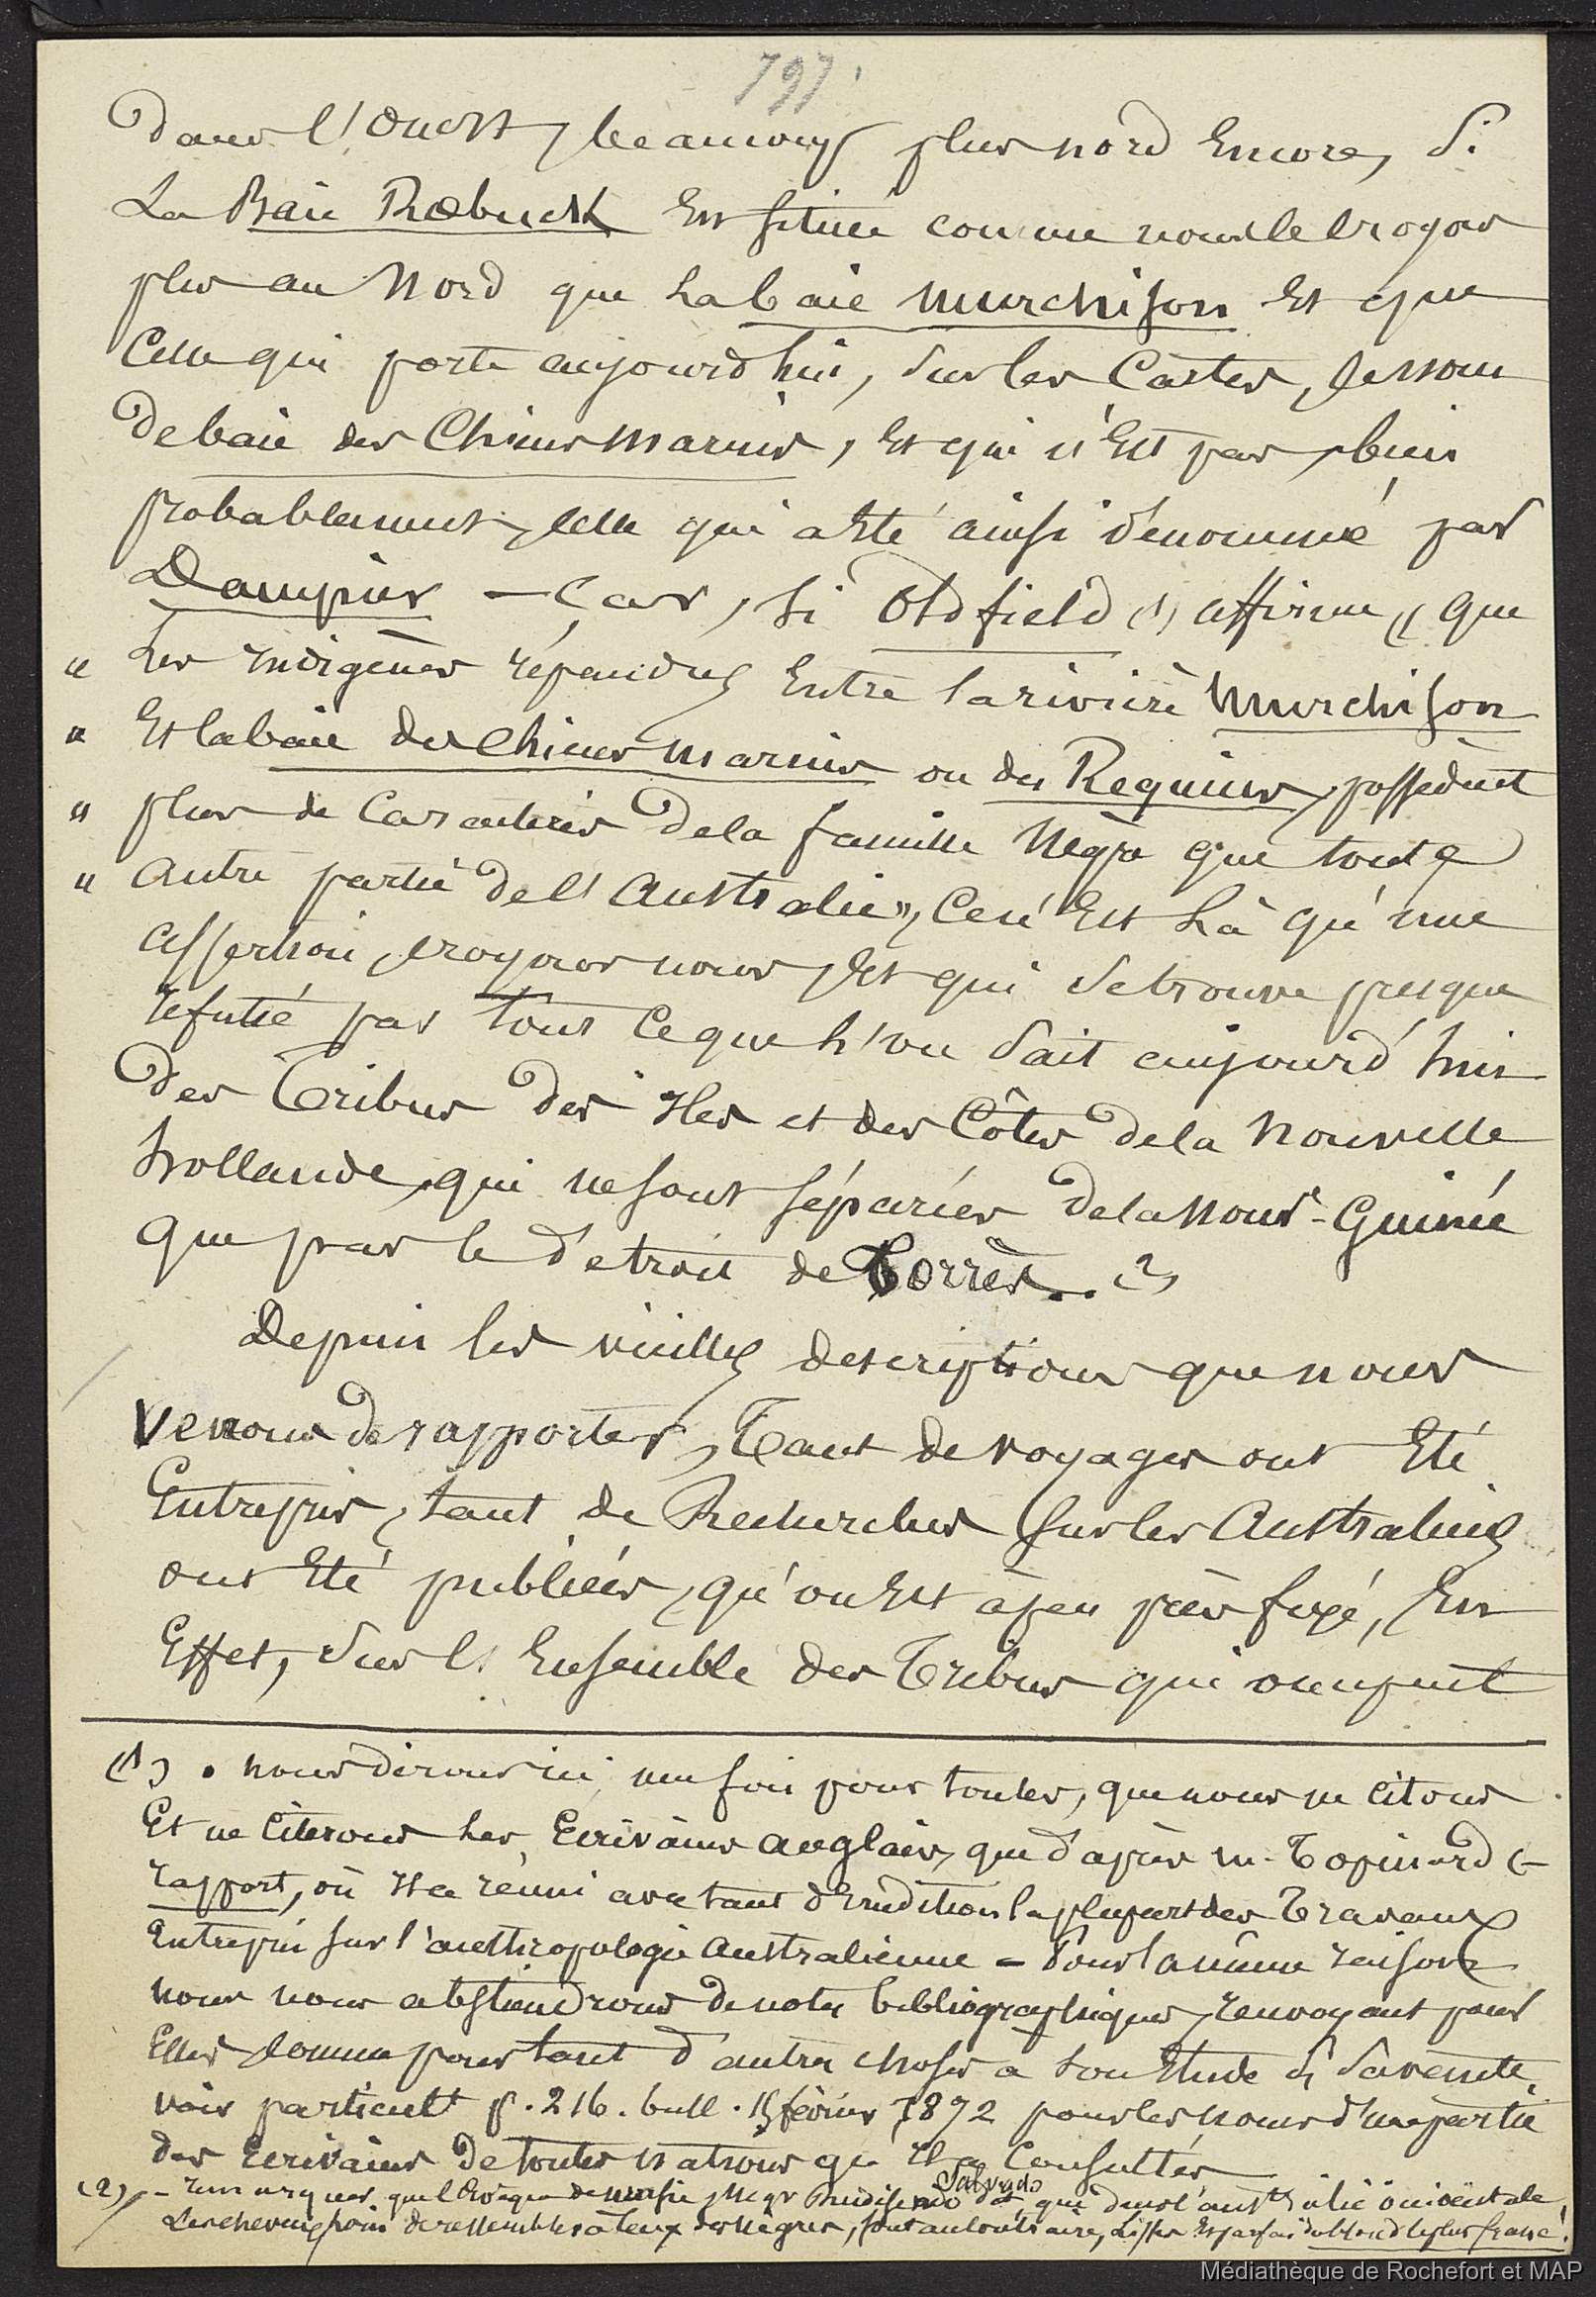 797
Dans l'Ouest, beaucoup plus nord Encore, Si
La Baie Rœbuck Est située comme nous le croyons
plus au Nord que la baie Murchison Et que
Celle qui porte aujourd'hui, sur les Cartes, le nom
de baie des Chiens marins, Et qui n'Est pas, bien
probablement, celle qui a Eté ainsi dénommée par
Dampier — Car, si Oldfield (1) affirme, « que
« les indigènes répandus Entre la rivière Murchison
« Et la baie des Chiens marins ou des Requins, possèdent
« plus de Caractères de la famille Nègre que toute
« autre partie de l'Australie », Ce n'Est là qu'une
assertion, croyons nous, Et qui se trouve presque
refutée par tout ce que l'on sait aujourd'hui
des Tribus des Iles et des Côtes de la Nouvelle
hollande, qui ne sont séparées de la Nouv-Guinée
que par le détroit de Torrès.. (2)
Depuis les vieilles descriptions que nous
Venons de rapporter, Tant de voyages ont Eté
Entrepris, tant de Recherches sur les Australiens
ont Eté publiées, qu'on Est à peu près fixé, En
Effet, sur l'Ensemble des Tribus qui occupent
(1) . nous dirons ici, une fois pour toutes, que nous ne citons
Et ne Citerons les Ecrivains anglais, que d'après M. Topinard (-
rapport, où Il a réuni avec tant d'Erudition la plupart des Travaux
Entrepris sur l'anthropologie Australienne = Pour la même raison
nous nous abstiendrons de notes bibliographiques, renvoyant pour
Elles, comme pour tant d'autres choses a son Etude si savante,
voir particult p. 216. bull. 15 février 1872 pour les noms d'une partie
des Ecrivains de toutes nations qu'Il a Consultés
(2) - remarquer, que l'Evêque Mgr Rudisendo Salvado dit, que dans l'austtralie occidentale,
Les cheveux, loin de ressembler à ceux des Nègres, sont au contraire, lisses Et parfois du blond le plus franc!
Médiathèque de Rochefort et MAP